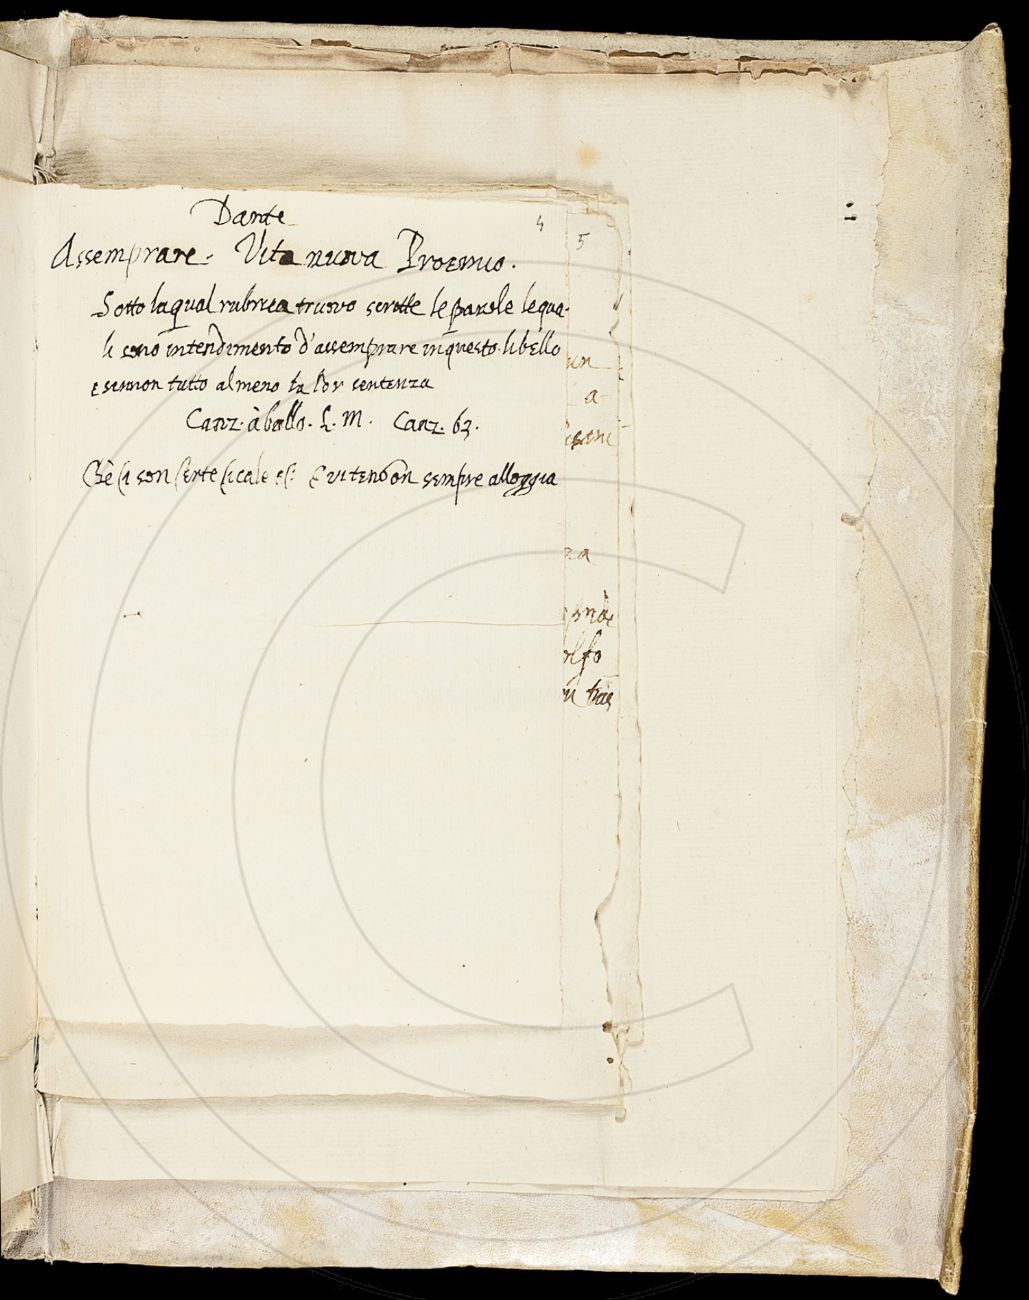 Dante
4
5
Assemprare. Vita nuova Proemio.
Sotto laqual rubrica truovo scritte le parole lequa-
li sono intendimento d'assemprare in questo libello
e sennon tutto almeno la lor sentenza
Canz. à ballo. L. M. Canz. 63.
Chè si son certe sicale & c vitengon sempre alloggia
un
a
za
olfo